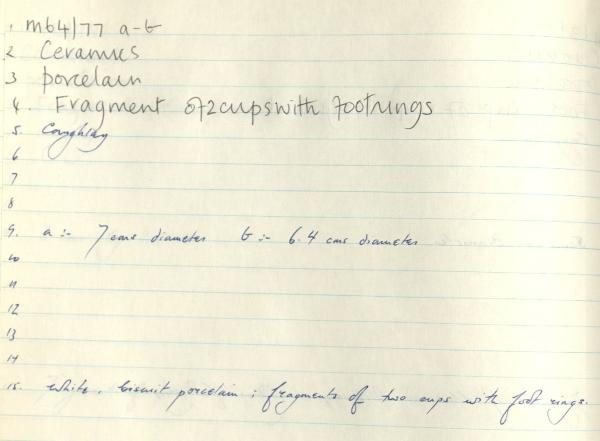 1 M64/77 a-b
2 Ceramics
3 porcelain
4. Fragment of 2 cups with footrings
5. Coughlay
6
7
8
9. a :- 7 cms diameter b :- 6.4 cms diameter
10
11
12
13
14
15. white, biscuit porcelain ; fragments of two cups with foot rings.